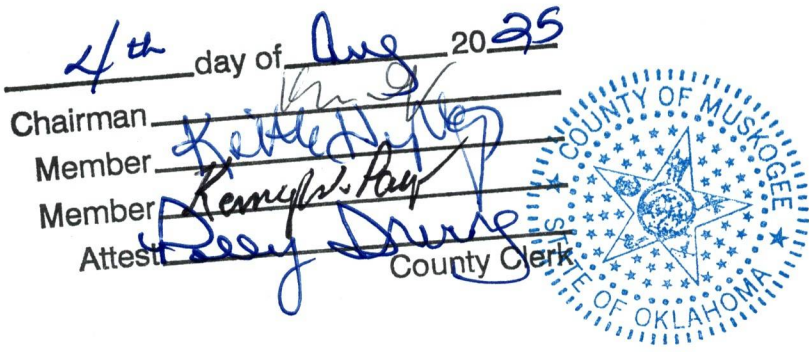 4th day of Aug 2025
Chairman
Member Keith Hyslop
Member Kenny W. Payne
Attest Polly Irving County Clerk
COUNTY OF MUSKOGEE
STATE OF OKLAHOMA